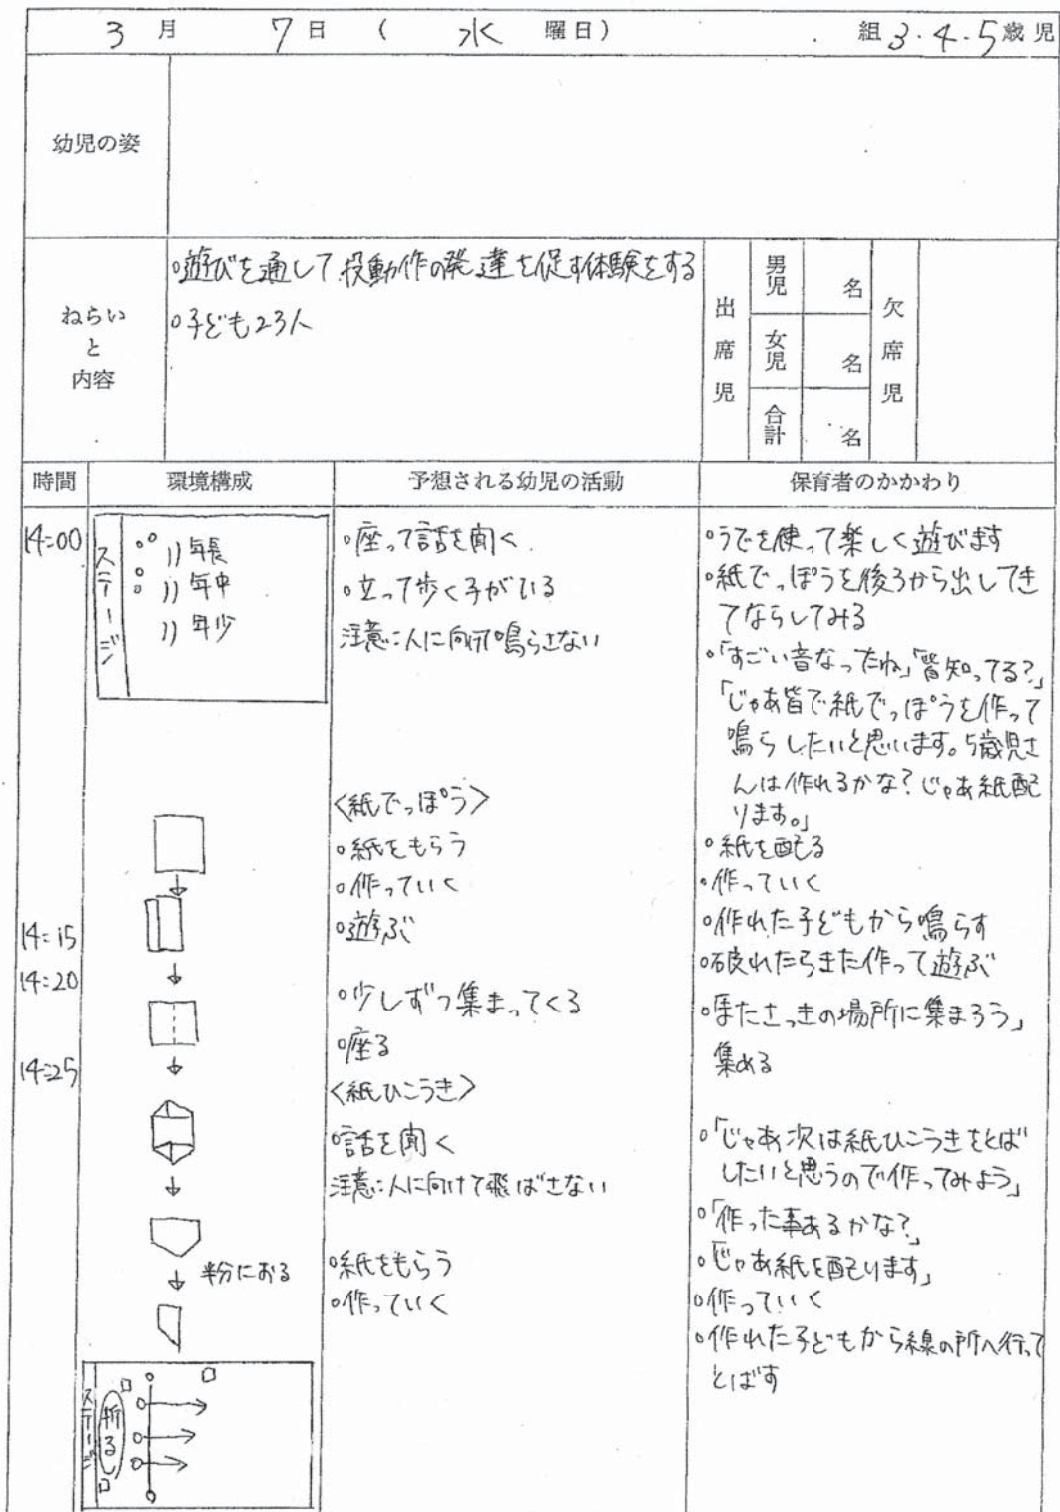 3月 7日 (水 曜日) 組 3.4.5歳児
幼児の姿
ねらい
と
内容
○遊びを通して投動作の発達を促す体験をする
○子ども23人
出席児
男児 名
女児 名
合計 名
欠席児
時間
環境構成
予想される幼児の活動
保育者のかかわり
14:00
ステージ
年長
年中
年少
○座って話を聞く
○立って歩く子がいる
注意:人に向けて鳴らさない
○うでを使って楽しく遊びます
○紙でっぽうを後ろから出してき
てならしてみる
○「すごい音なったね」「皆知ってる?」
「じゃあ皆で紙でっぽうを作って
鳴らしたいと思います。5歳児さ
んは作れるかな?じゃあ紙配
ります。」
<紙でっぽう>
○紙をもらう
○作っていく
○遊ぶ
○紙を配る
○作っていく
○作れた子どもから鳴らす
○破れたらまた作って遊ぶ
14:15
14:20
○少しずつ集まってくる
○座る
○「またさっきの場所に集まろう」
集める
14:25
<紙ひこうき>
○話を聞く
注意:人に向けて飛ばさない
○「じゃあ次は紙ひこうきをとば
したいと思うので作ってみよう」
○「作った事あるかな?」
半分におる
○紙をもらう
○作っていく
○「じゃあ紙を配ります」
○作っていく
○作れた子どもから線の所へ行って
とばす
ステージ
折る